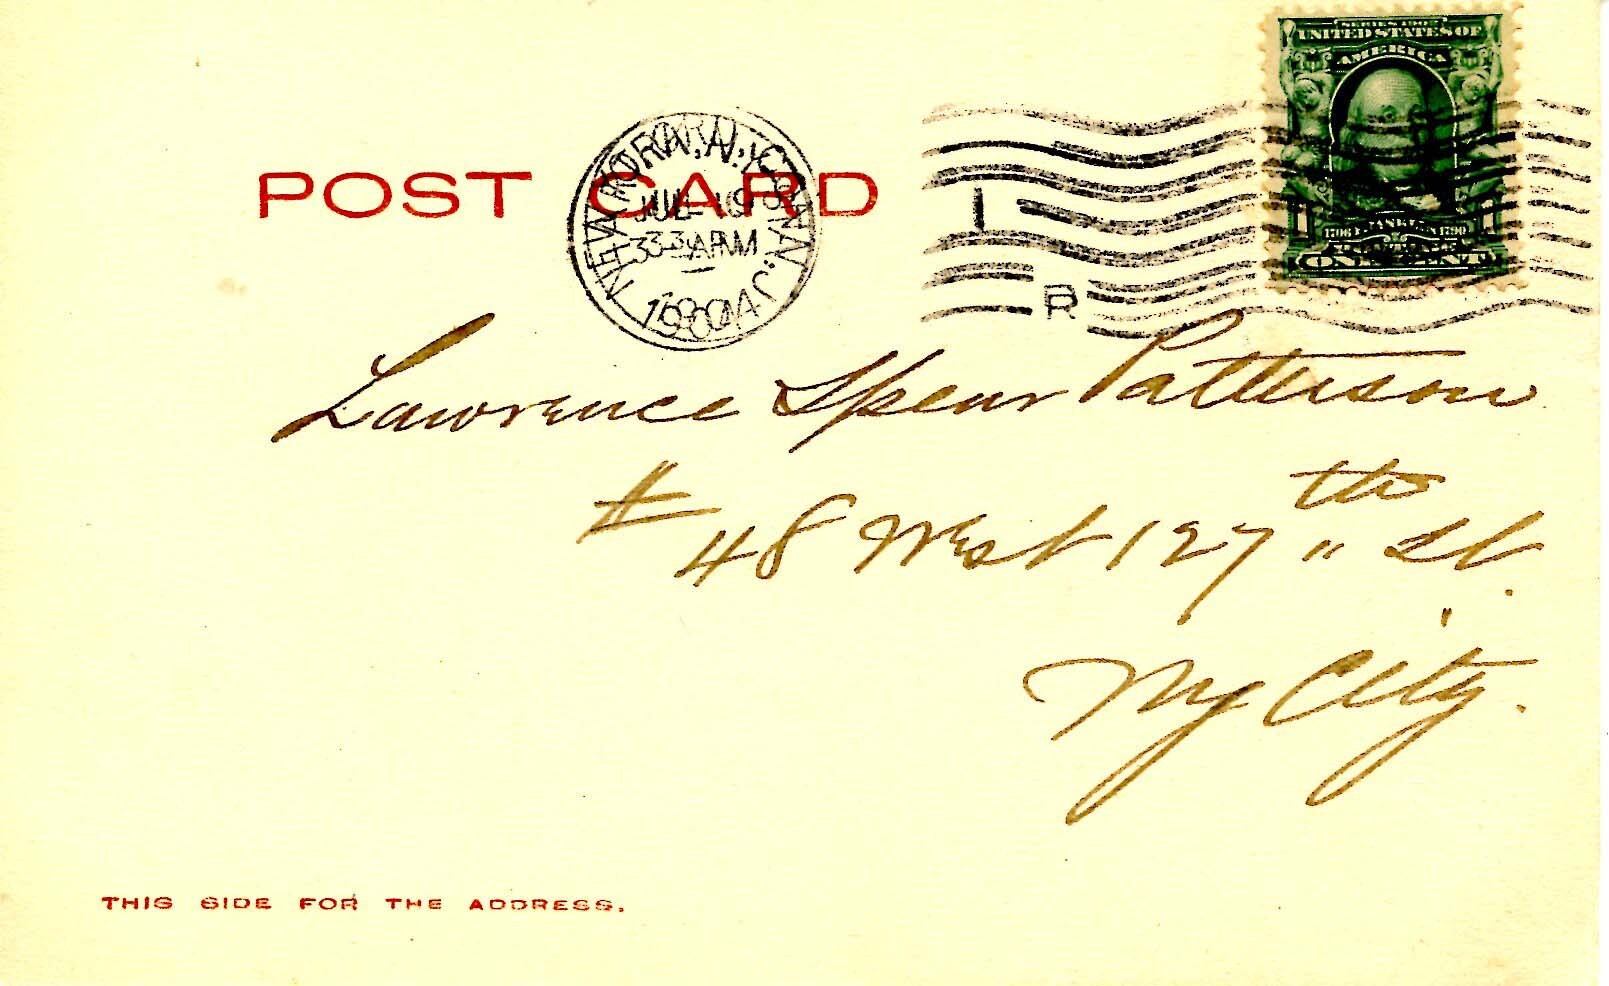 SERIES 1902
UNITED STATES OF
AMERICA
POST CARD
NEW YORK, N.Y.
JUL
1
R
1706 FRANKLIN 1790
ONE CENT
Lawrence Spear Patterson
# 48 West 127th " St.
Ny City.
THIS SIDE FOR THE ADDRESS.